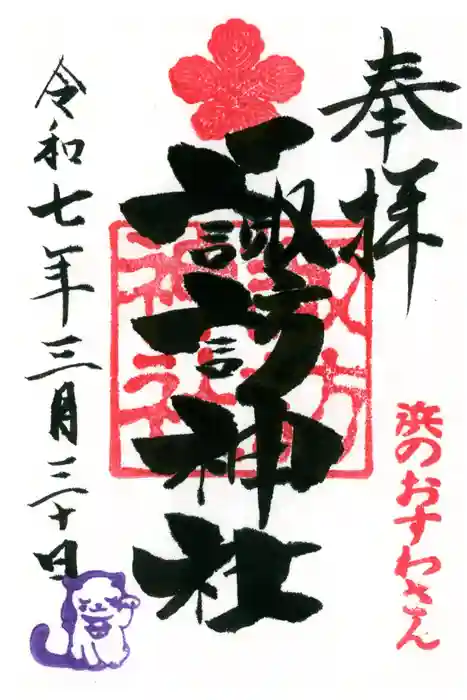 奉拝
浜のおすわさん
諏訪神社
諏訪神社
令和七年三月三十日